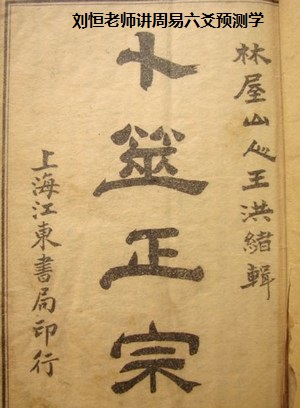 刘恒老师讲周易六爻预测学
林屋山人王洪緒輯
卜筮正宗
上海江東書局印行